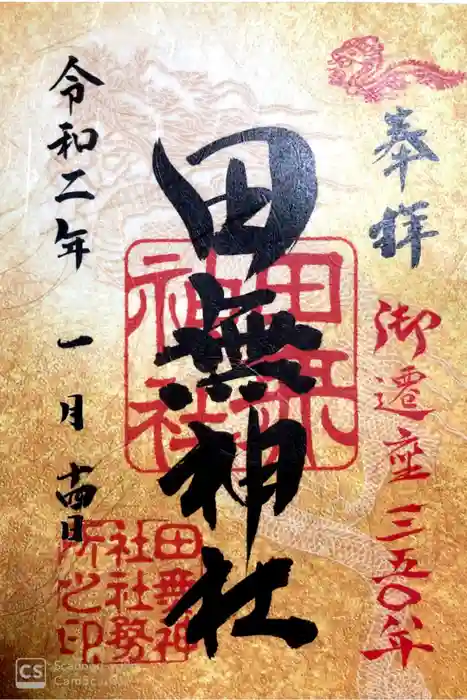 奉拝
御遷座三五〇年
田無神社
田無神社
令和二年 一月 十四日
田無神社社務所之印
CS Scanned with
CamSc